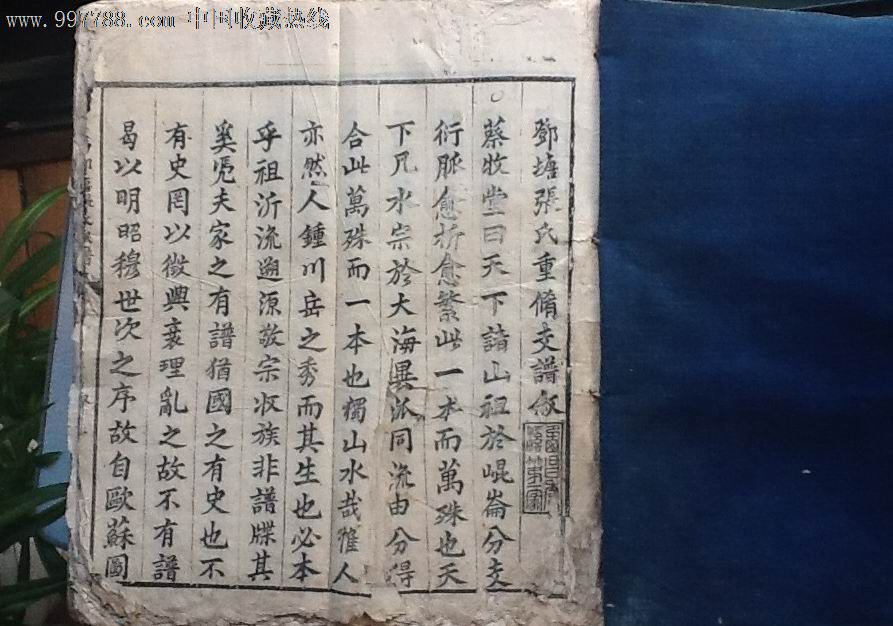 www.997788.com 中国收藏热线
鄧塘張氏重脩支譜敘
蔡牧堂曰天下諸山祖於崐崙分支
衍脈愈析愈繁此一本而萬殊也天
下凡水宗於大海異派同流由分得
合此萬殊而一本也獨山水哉惟人
亦然人鍾川岳之秀而其生也必本
乎祖沂流遡源敬宗收族非譜牒其
奚凴夫家之有譜猶國之有史也不
有史罔以徵興衰理亂之故不有譜
曷以明昭穆世次之序故自歐蘇圖